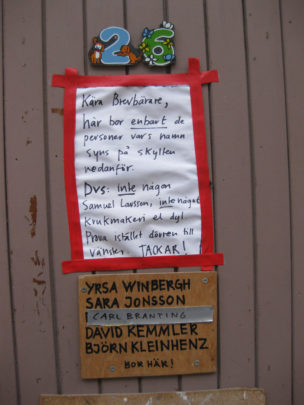 26
Kära Brevbärare,
här bor enbart de
personer vars namn
syns på skylten
nedanför.
Dvs: inte någon
Samuel Larsson, inte något
Krukmakeri el dyl
Prova istället dörren till
vänster. TACKAR!
YRSA WINBERGH
SARA JONSSON
CARL BRANTING
DAVID KEMMLER
BJÖRN KLEINHENZ
BOR HÄR!